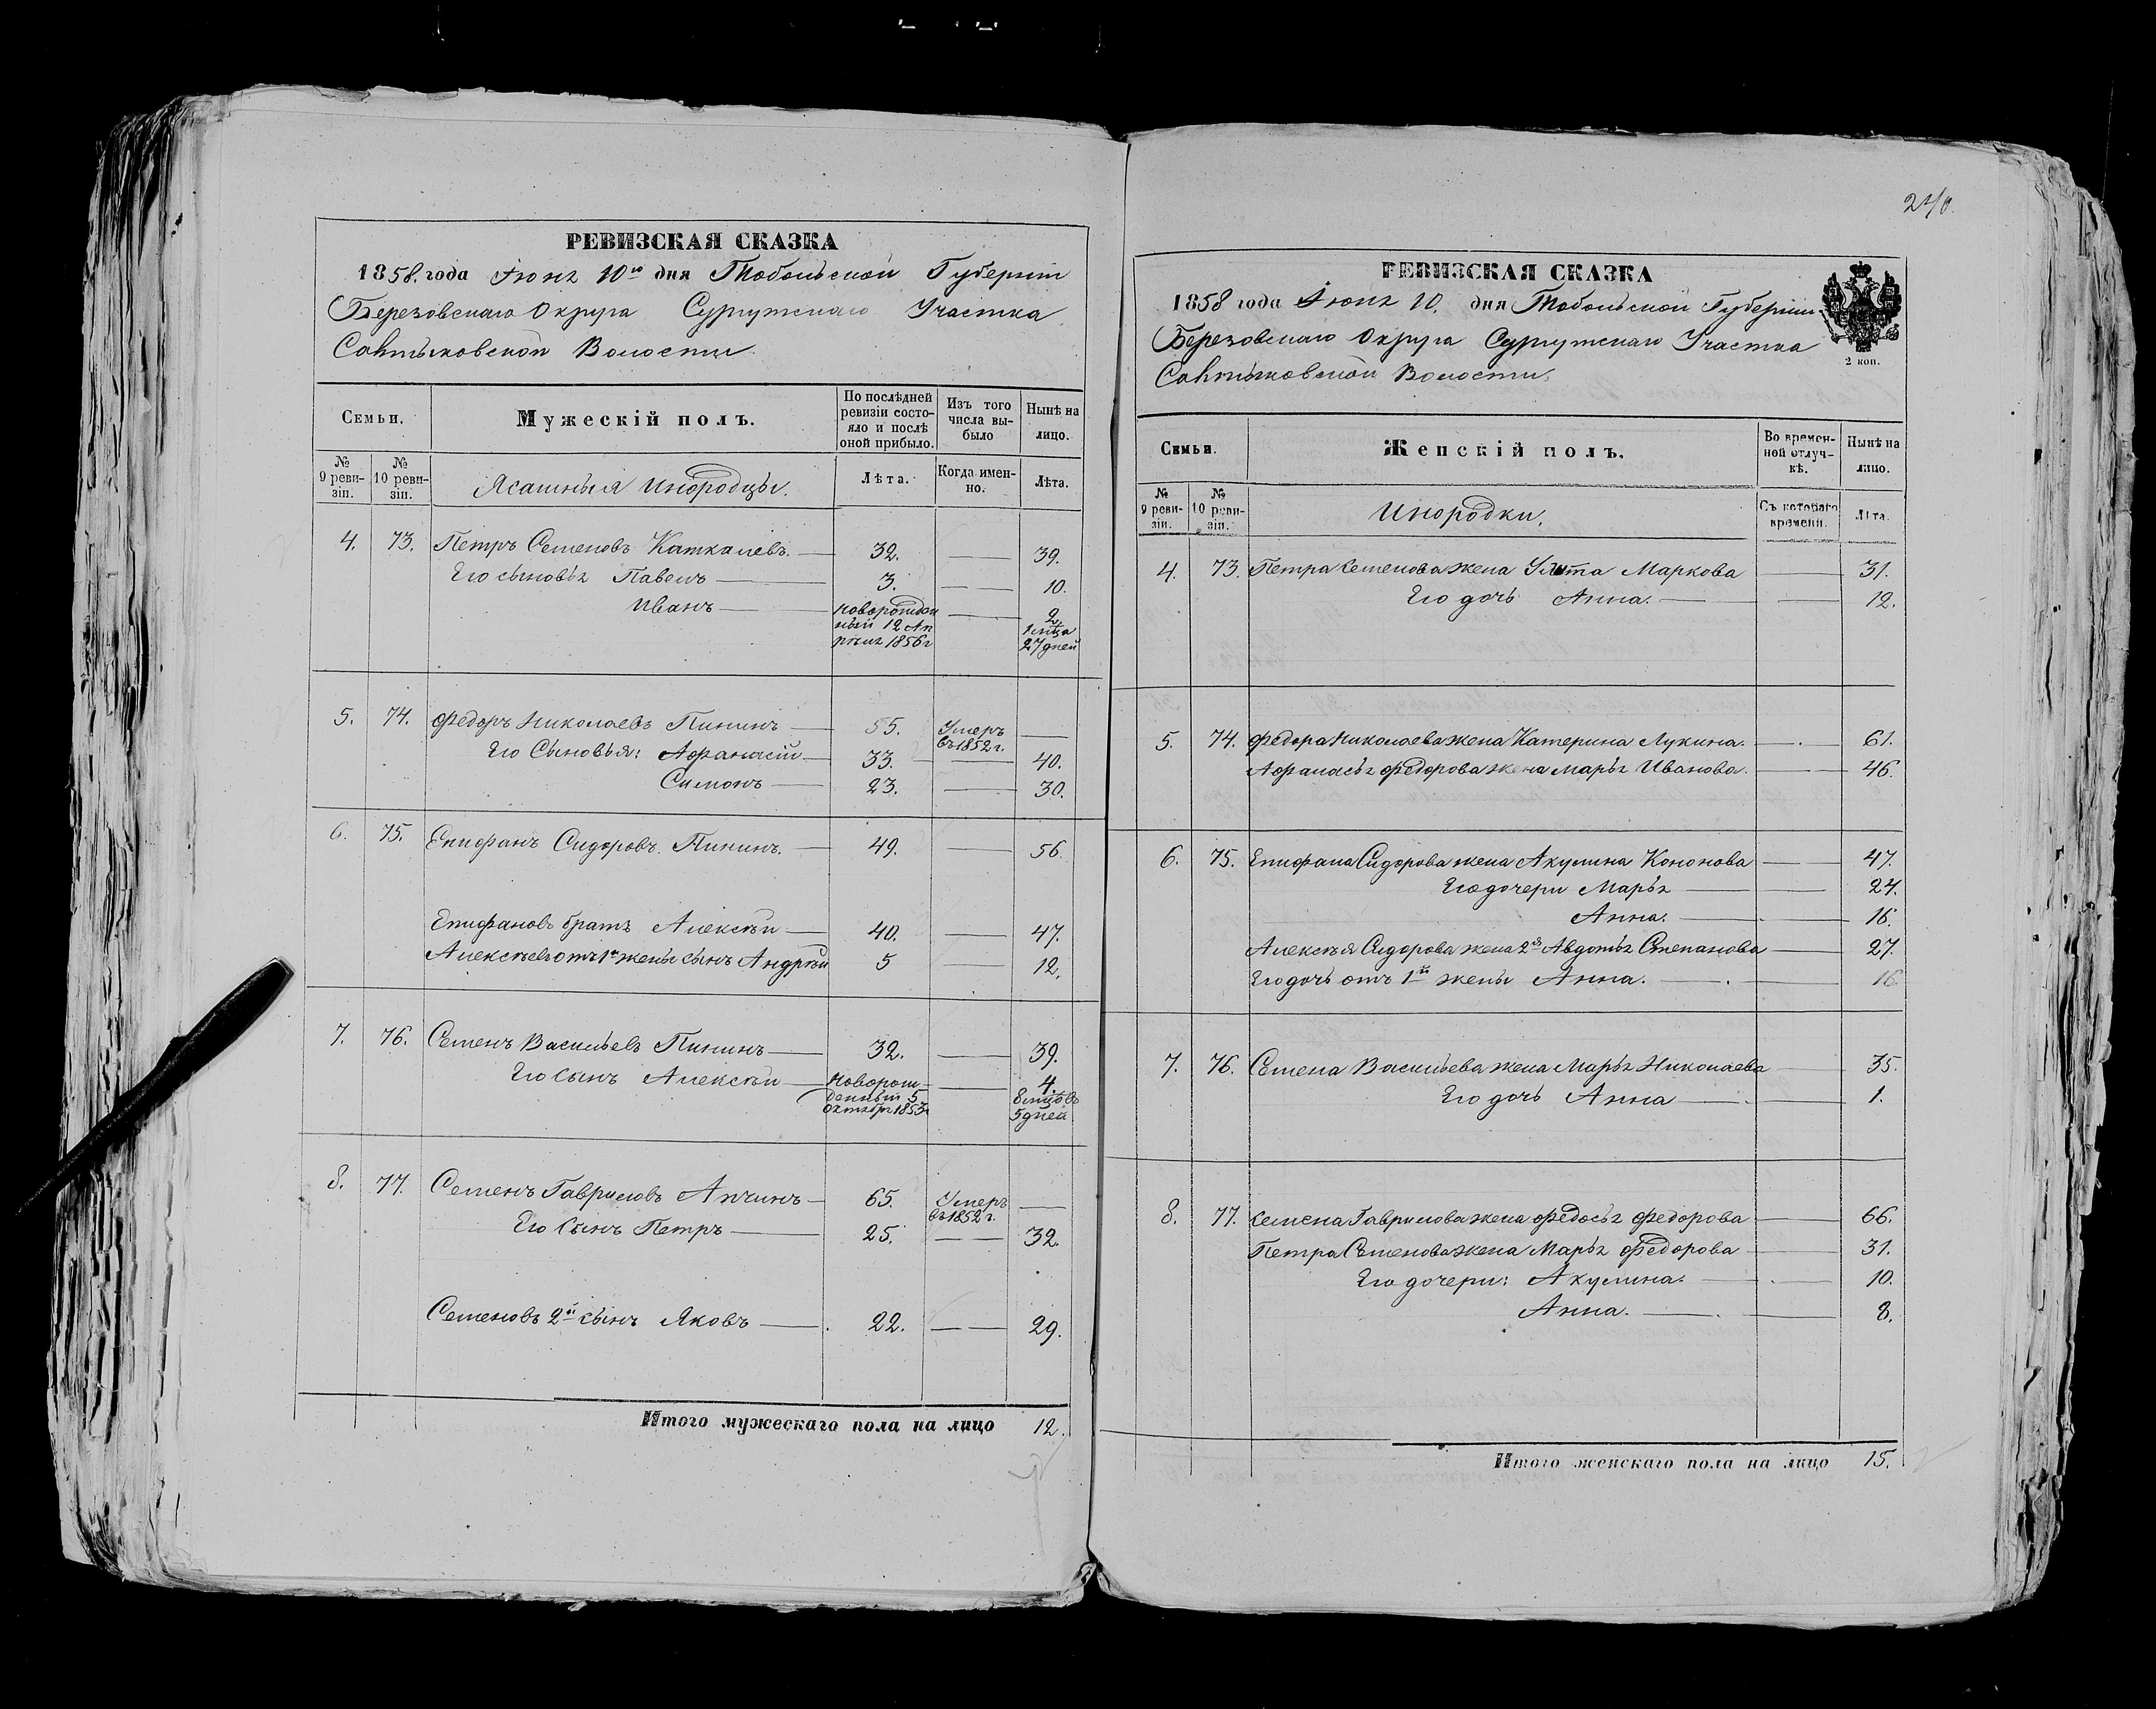 240.
РЕВИЗСКАЯ СКАЗКА
1858. года Іюня 10го дня Тобольской Губерніи
Березовскаго Округа Сургутскаго Участка
Волости
Семьи.
Мужескій полъ.
По послѣдней ревизіи состояло и послѣ оной прибыло.
Изъ того числа выбыло
Нынѣ на лицо.
№ 9 ревизіи.
№ 10 ревизіи.
Ясашныя Инородцы.
Лѣта.
Когда именно.
Лѣта.
4. 73. Петръ Семеновъ 32. 39.
Его сыновья Павелъ 3. 10.
Иванъ новорожден 2,
ный 12 Ап 1 мѣца
рѣля 1856 г 27 дней
5. 74. Федоръ Николаевъ Пининъ 55. Умеръ
въ 1852 г.
Его Сыновья: Афанасій 33. 40.
Симонъ 23. 30.
6. 75. Епифанъ Сидоровъ Пининъ. 49. 56.
Епифановъ братъ Алексѣй 40. 47.
Алексѣевъ отъ 1й жены сынъ Андрѣй 5 12.
7. 76. Семенъ Васильевъ Пининъ 32. 39.
Его сынъ Алексѣй Новорож- 4.
денный 5 8 мцовъ
октября 1853 5 дней
8. 77. Семенъ Гавриловъ 65. Умеръ
въ 1852 г.
Его Сынъ Петръ 25. 32.
Семеновъ 2й сынъ Яковъ 22. 29.
Итого мужескаго пола на лицо 12.
РЕВИЗСКАЯ СКАЗКА
1858 года Іюня 10. дня Тобольской Губерніи
Березовскаго Округа Сургутскаго Участка
Волости.
2 коп.
Семьи.
Женскій полъ.
Во временной отлучкѣ.
Нынѣ на лицо.
№ 9 ревизіи.
№ 10 ревизіи.
Инородки.
Съ котораго времени.
Лѣта.
4. 73. Петра Семенова жена Улита Маркова 31.
Его дочь Анна. 12.
5. 74. Федора Николаева жена Катерина Лукина. 61.
Афанасья Федорова жена Марья Иванова. 46.
6. 75. Епифана Сидорова жена Акулина Кононова 47.
Его дочери Марья 24.
Анна. 16.
Алексѣя Сидорова жена 2я Авдотья Степанова 27.
Его дочь отъ 1й жены Анна. 16
7. 76. Семена Васильева жена Марья Николаева 35.
Его дочь Анна 1.
8. 77. Семена Гаврилова жена Федосья Федорова 66.
Петра Семенова жена Марья Федорова 31.
Его дочери: Акулина. 10.
Анна. 8.
Итого женскаго пола на лицо 15.